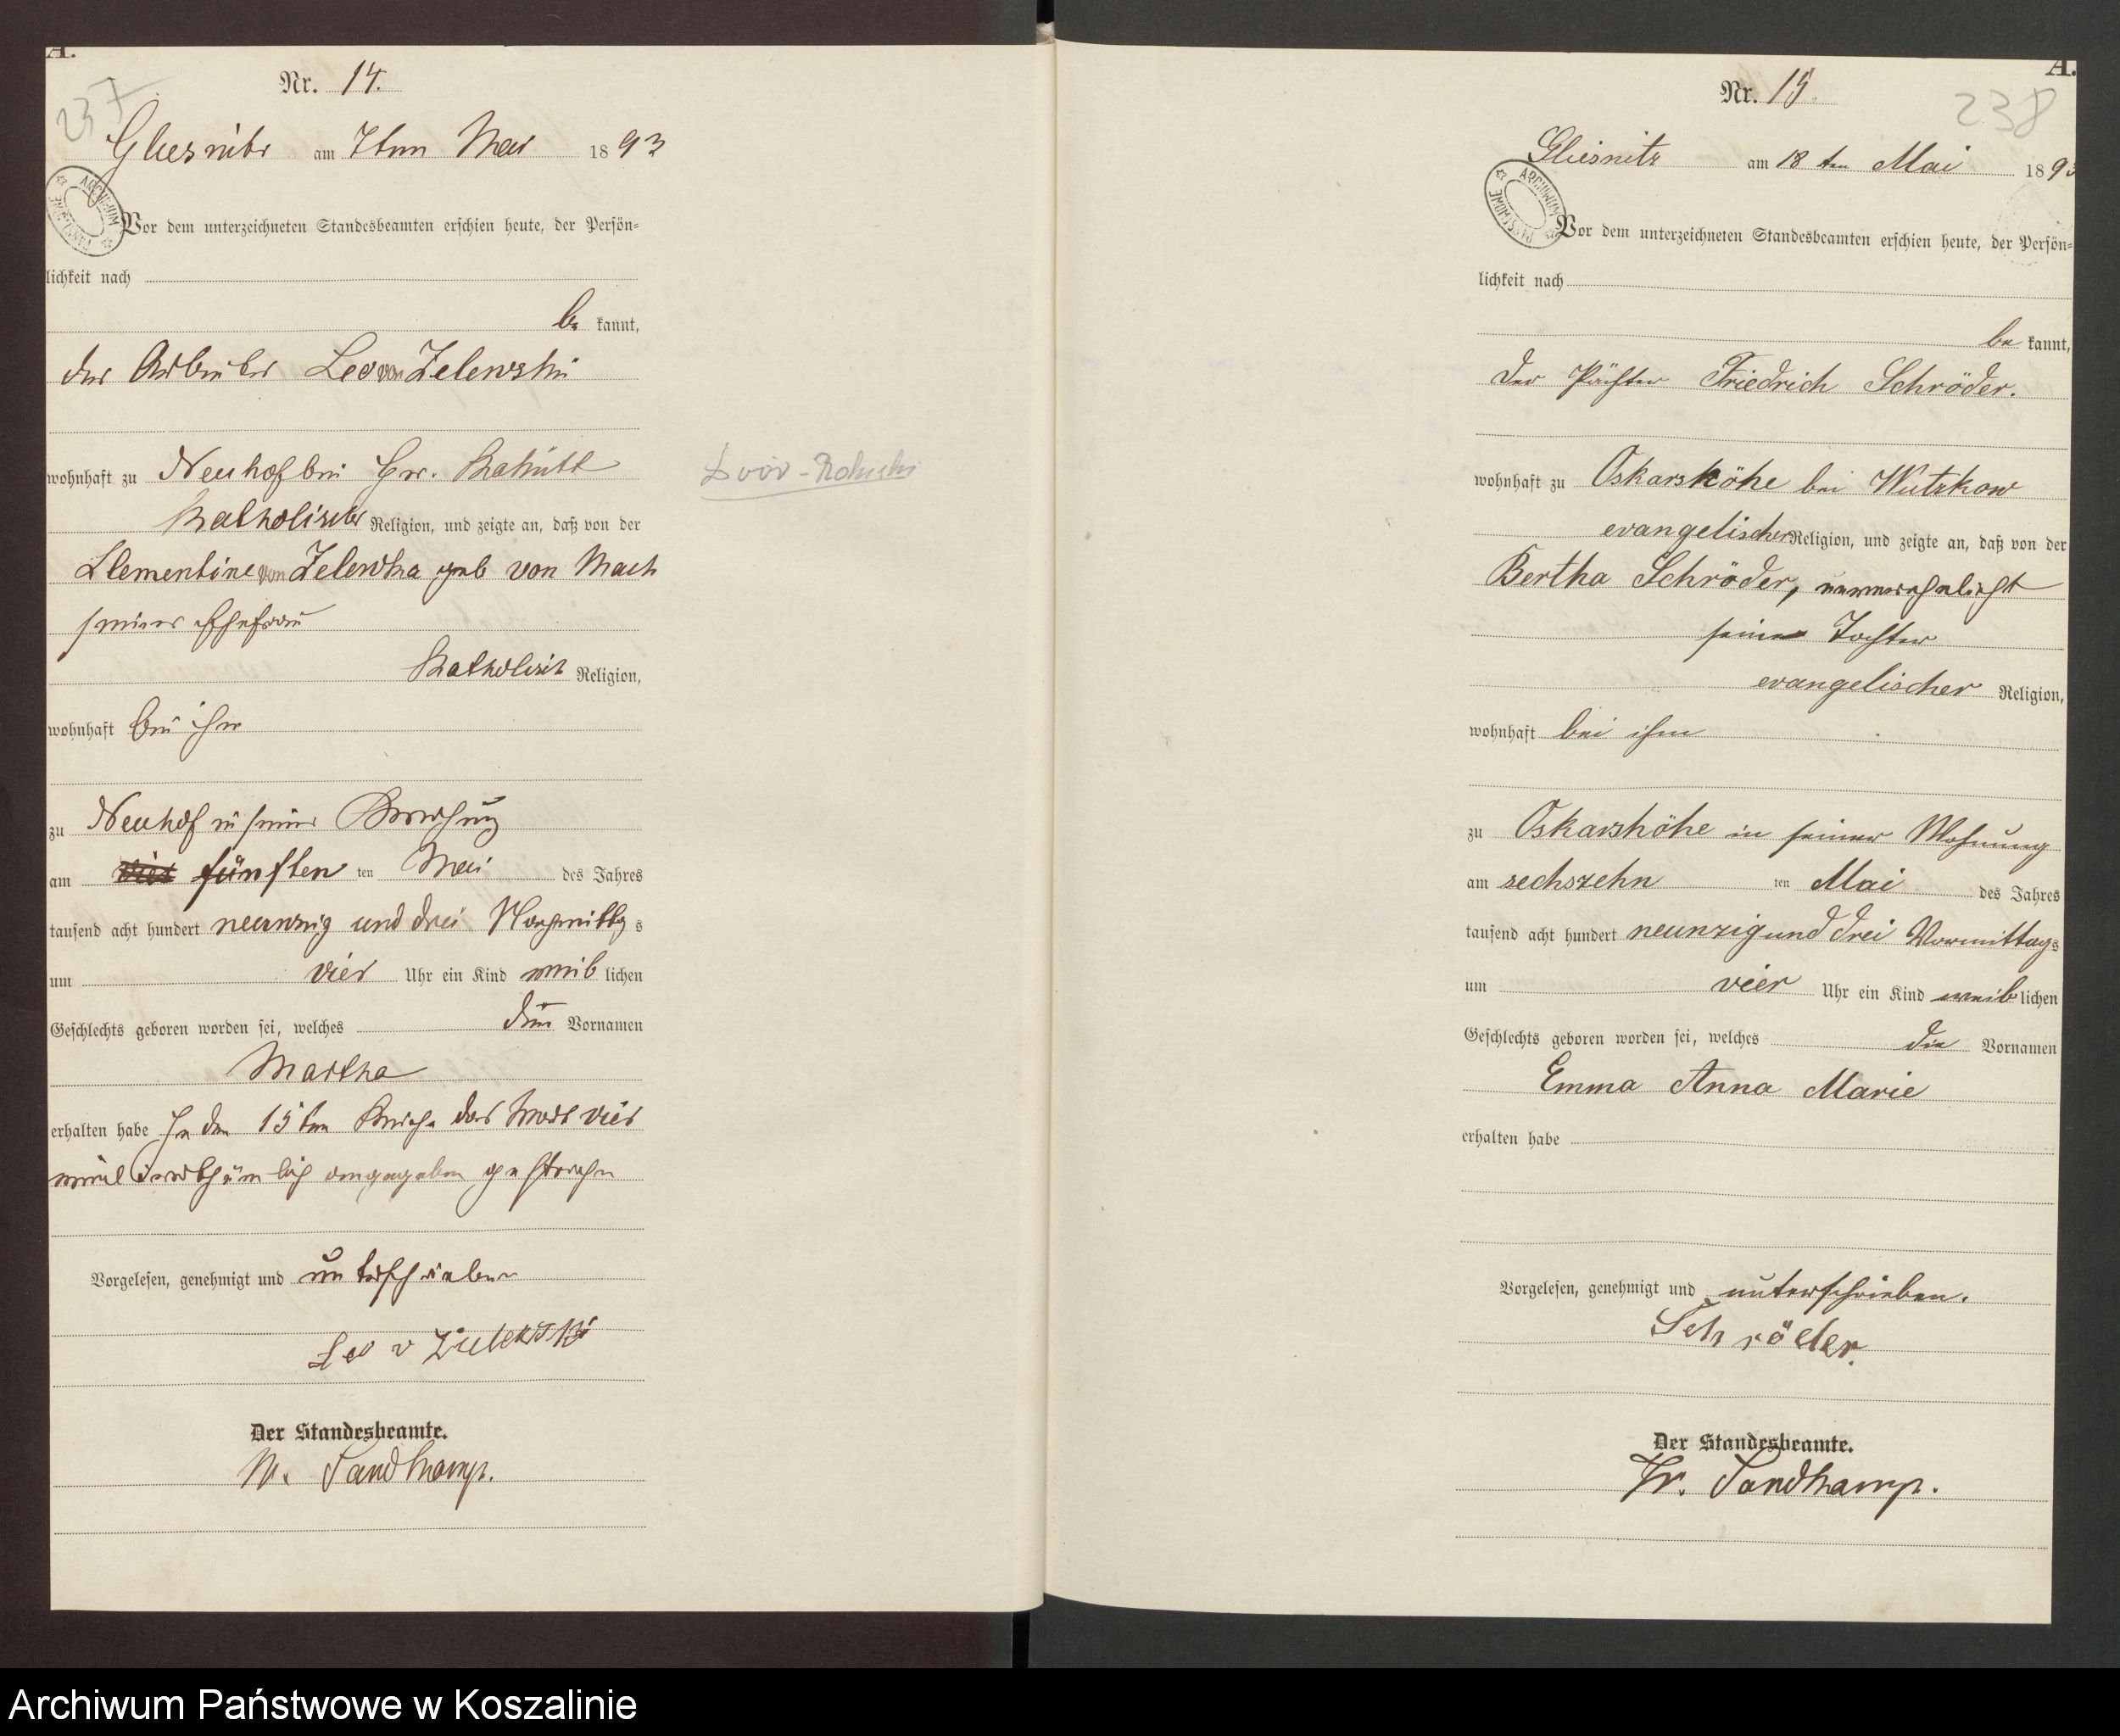 A.
Nr. 14.
237
Gliesnitz am 7ten Mai 1893
ARCHIWUM PAŃSTWOWE
Vor dem unterzeichneten Standesbeamten erschien heute, der Persön=
lichkeit nach
be kannt,
der Arbeiter Leo von Zelewski
wohnhaft zu Neuhof bei Gr. Rakitt
katholischer Religion, und zeigte an, daß von der
Clementine von Zelewska geb von Mach
seiner Ehefrau
katholisch Religion,
wohnhaft bei ihm
zu Neuhof in seiner Behausung
am vier fünften ten Mai des Jahres
tausend acht hundert neunzig und drei Nachmittags
um vier Uhr ein Kind weiblichen
Geschlechts geboren worden sei, welches den Vornamen
Martha
erhalten habe In der 15ten Reihe das Wort vier
weil irrthümlich angegeben gestrichen
Vorgelesen, genehmigt und unterschrieben
Leo v Zielewski
Der Standesbeamte.
Sandkamp.
A.
Nr. 15.
238
Gliesnitz am 18 ten Mai 1893
ARCHIWUM PAŃSTWOWE
Vor dem unterzeichneten Standesbeamten erschien heute, der Persön=
lichkeit nach
be kannt,
der Pächter Friedrich Schröder.
wohnhaft zu Oskarshöhe bei Wutzkow
evangelischer Religion, und zeigte an, daß von der
Bertha Schröder, unverehelicht
seine Tochter
evangelischer Religion,
wohnhaft bei ihm
zu Oskarshöhe in seiner Wohnung
am sechszehn ten Mai des Jahres
tausend acht hundert neunzig und drei Vormittags
um vier Uhr ein Kind weiblichen
Geschlechts geboren worden sei, welches die Vornamen
Emma Anna Marie
erhalten habe
Vorgelesen, genehmigt und unterschrieben.
Schröder.
Der Standesbeamte.
Fr. Sandkamp.
Archiwum Państwowe w Koszalinie